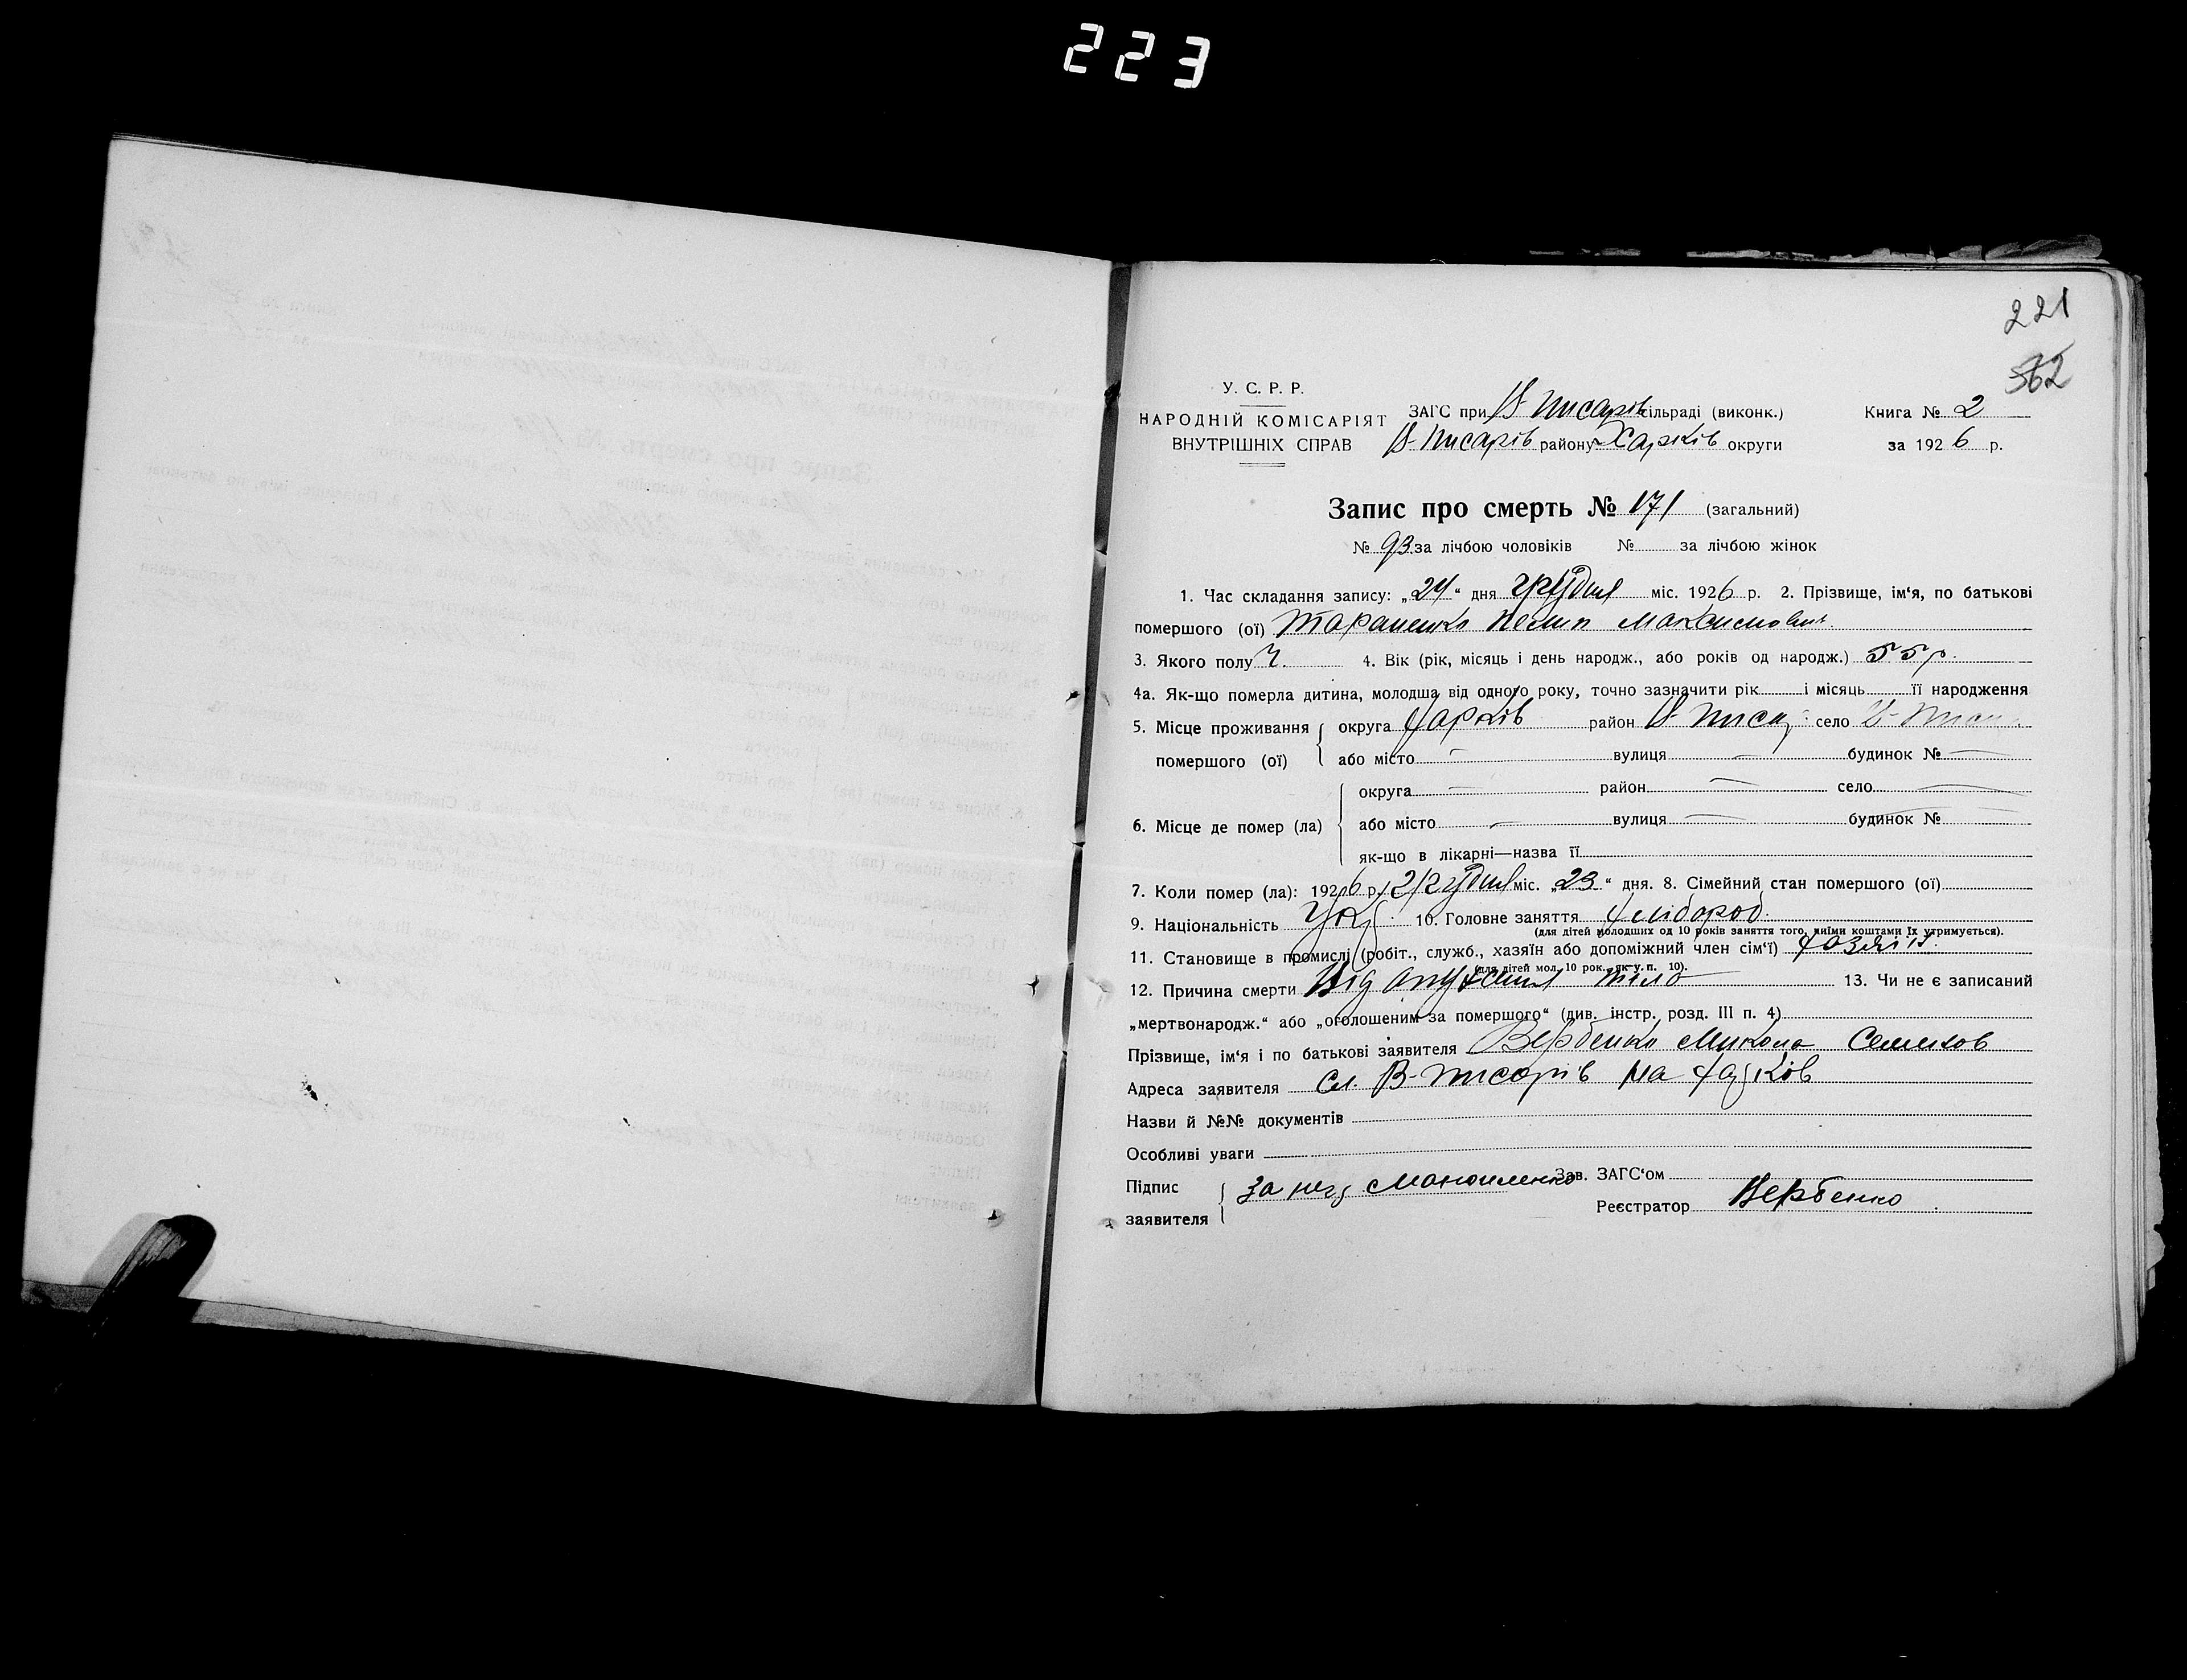 223
221
562
У. С. Р. Р.
НАРОДНІЙ КОМІСАРІЯТ
ВНУТРІШНІХ СПРАВ
ЗАГС при В-Писарів сільраді (виконк.)
В-Писарів району Харків округи
Книга № 2
за 1926 р.
Запис про смерть № 171 (загальний)
№ 93 за лічбою чоловіків № за лічбою жінок
1. Час складання запису: „24“ дня грудня міс. 1926 р. 2. Прізвище, ім‘я, по батькові
помершого (ої) Тараненко Пелип Максимович
3. Якого полу Ч. 4. Вік (рік, місяць і день народж., або років од народж.) 55 р.
4а. Як-що померла дитина, молодша від одного року, точно зазначити рік і місяць її народження
5. Місце проживання помершого (ої) округа Харків район В-Писар село В-Писар
або місто — вулиця — будинок № —
6. Місце де помер (ла) округа — район — село —
або місто — вулиця — будинок № —
як-що в лікарні—назва її
7. Коли помер (ла): 1926 р. 12/грудня міс. „23“ дня. 8. Сімейний стан помершого (ої)
9. Національність Укр. 10. Головне заняття хлібороб.
(для дітей молодших од 10 років заняття того, чиїми коштами їх утримується).
11. Становище в промислі (робіт., служб., хазяїн або допоміжний член сім‘ї) хазяїн.
(для дітей мол. 10 рок. як у п. 10).
12. Причина смерти Від опухения тіла 13. Чи не є записаний
„мертвонародж.“ або „оголошеним за помершого“ (див. інстр. розд. III п. 4)
Прізвище, ім‘я і по батькові заявителя Вербенко Микола Семенов
Адреса заявителя Сл. В-Писарів на Харків
Назви й №№ документів
Особливі уваги
Підпис заявителя За нег Манойленко
Зав. ЗАГС‘ом
Реєстратор Вербенко